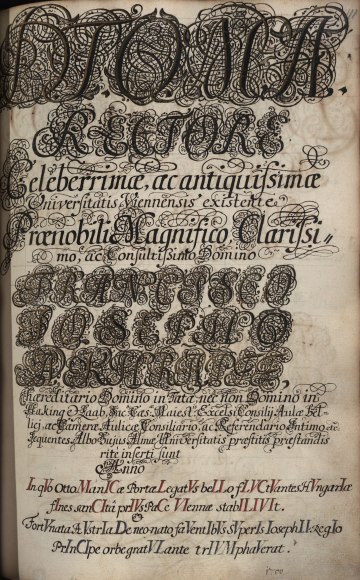 D.T.O.M.A.
RECTORE
Celeberrimæ, ac antiquissimæ
Universitatis Viennensis existente
Prænobili Magnifico Clarissi=
mo, ac Consultissimo Domino
FRANCISCO
IOSEPHO
hæreditario Domino in nec non Domino in
Haking & Raab, Sac. Cæs. Maies. Excelsi Consilij Aulæ Bel=
lici, ac Cameræ Aulicæ Consiliario, ac Referendario Intimo &c.
Sequentes Albo hujus Almæ Universitatis præstitis præstandis
rite inserti sunt
Anno
In qVo OttoManICæ Portæ LegatVs beLLo fLVCtVantes HVngarIæ
fInes sanCItâ prIVs PaCe VIennæ stabILIVIt.
FortVnata AVstrIa De neo-nato faVentIbVs SVperIs Ioseph Regio
PrInCIpe orbe gratVLante trIVMphaVerat.